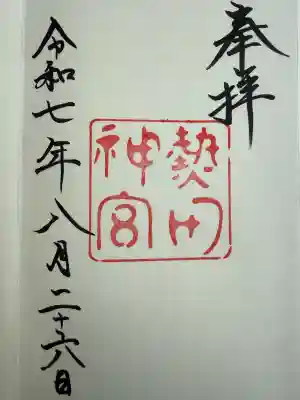 奉拝
熱田
神宮
令和七年八月二十六日